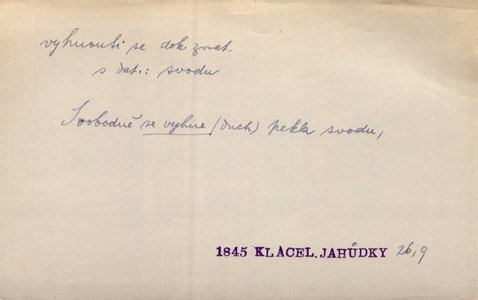 vyhnouti se dok zvrat.
s dat.: svodu
Svobodně se vyhne (duch) pekla svodu,
1845 KLACEL.JAHŮDKY 26,9